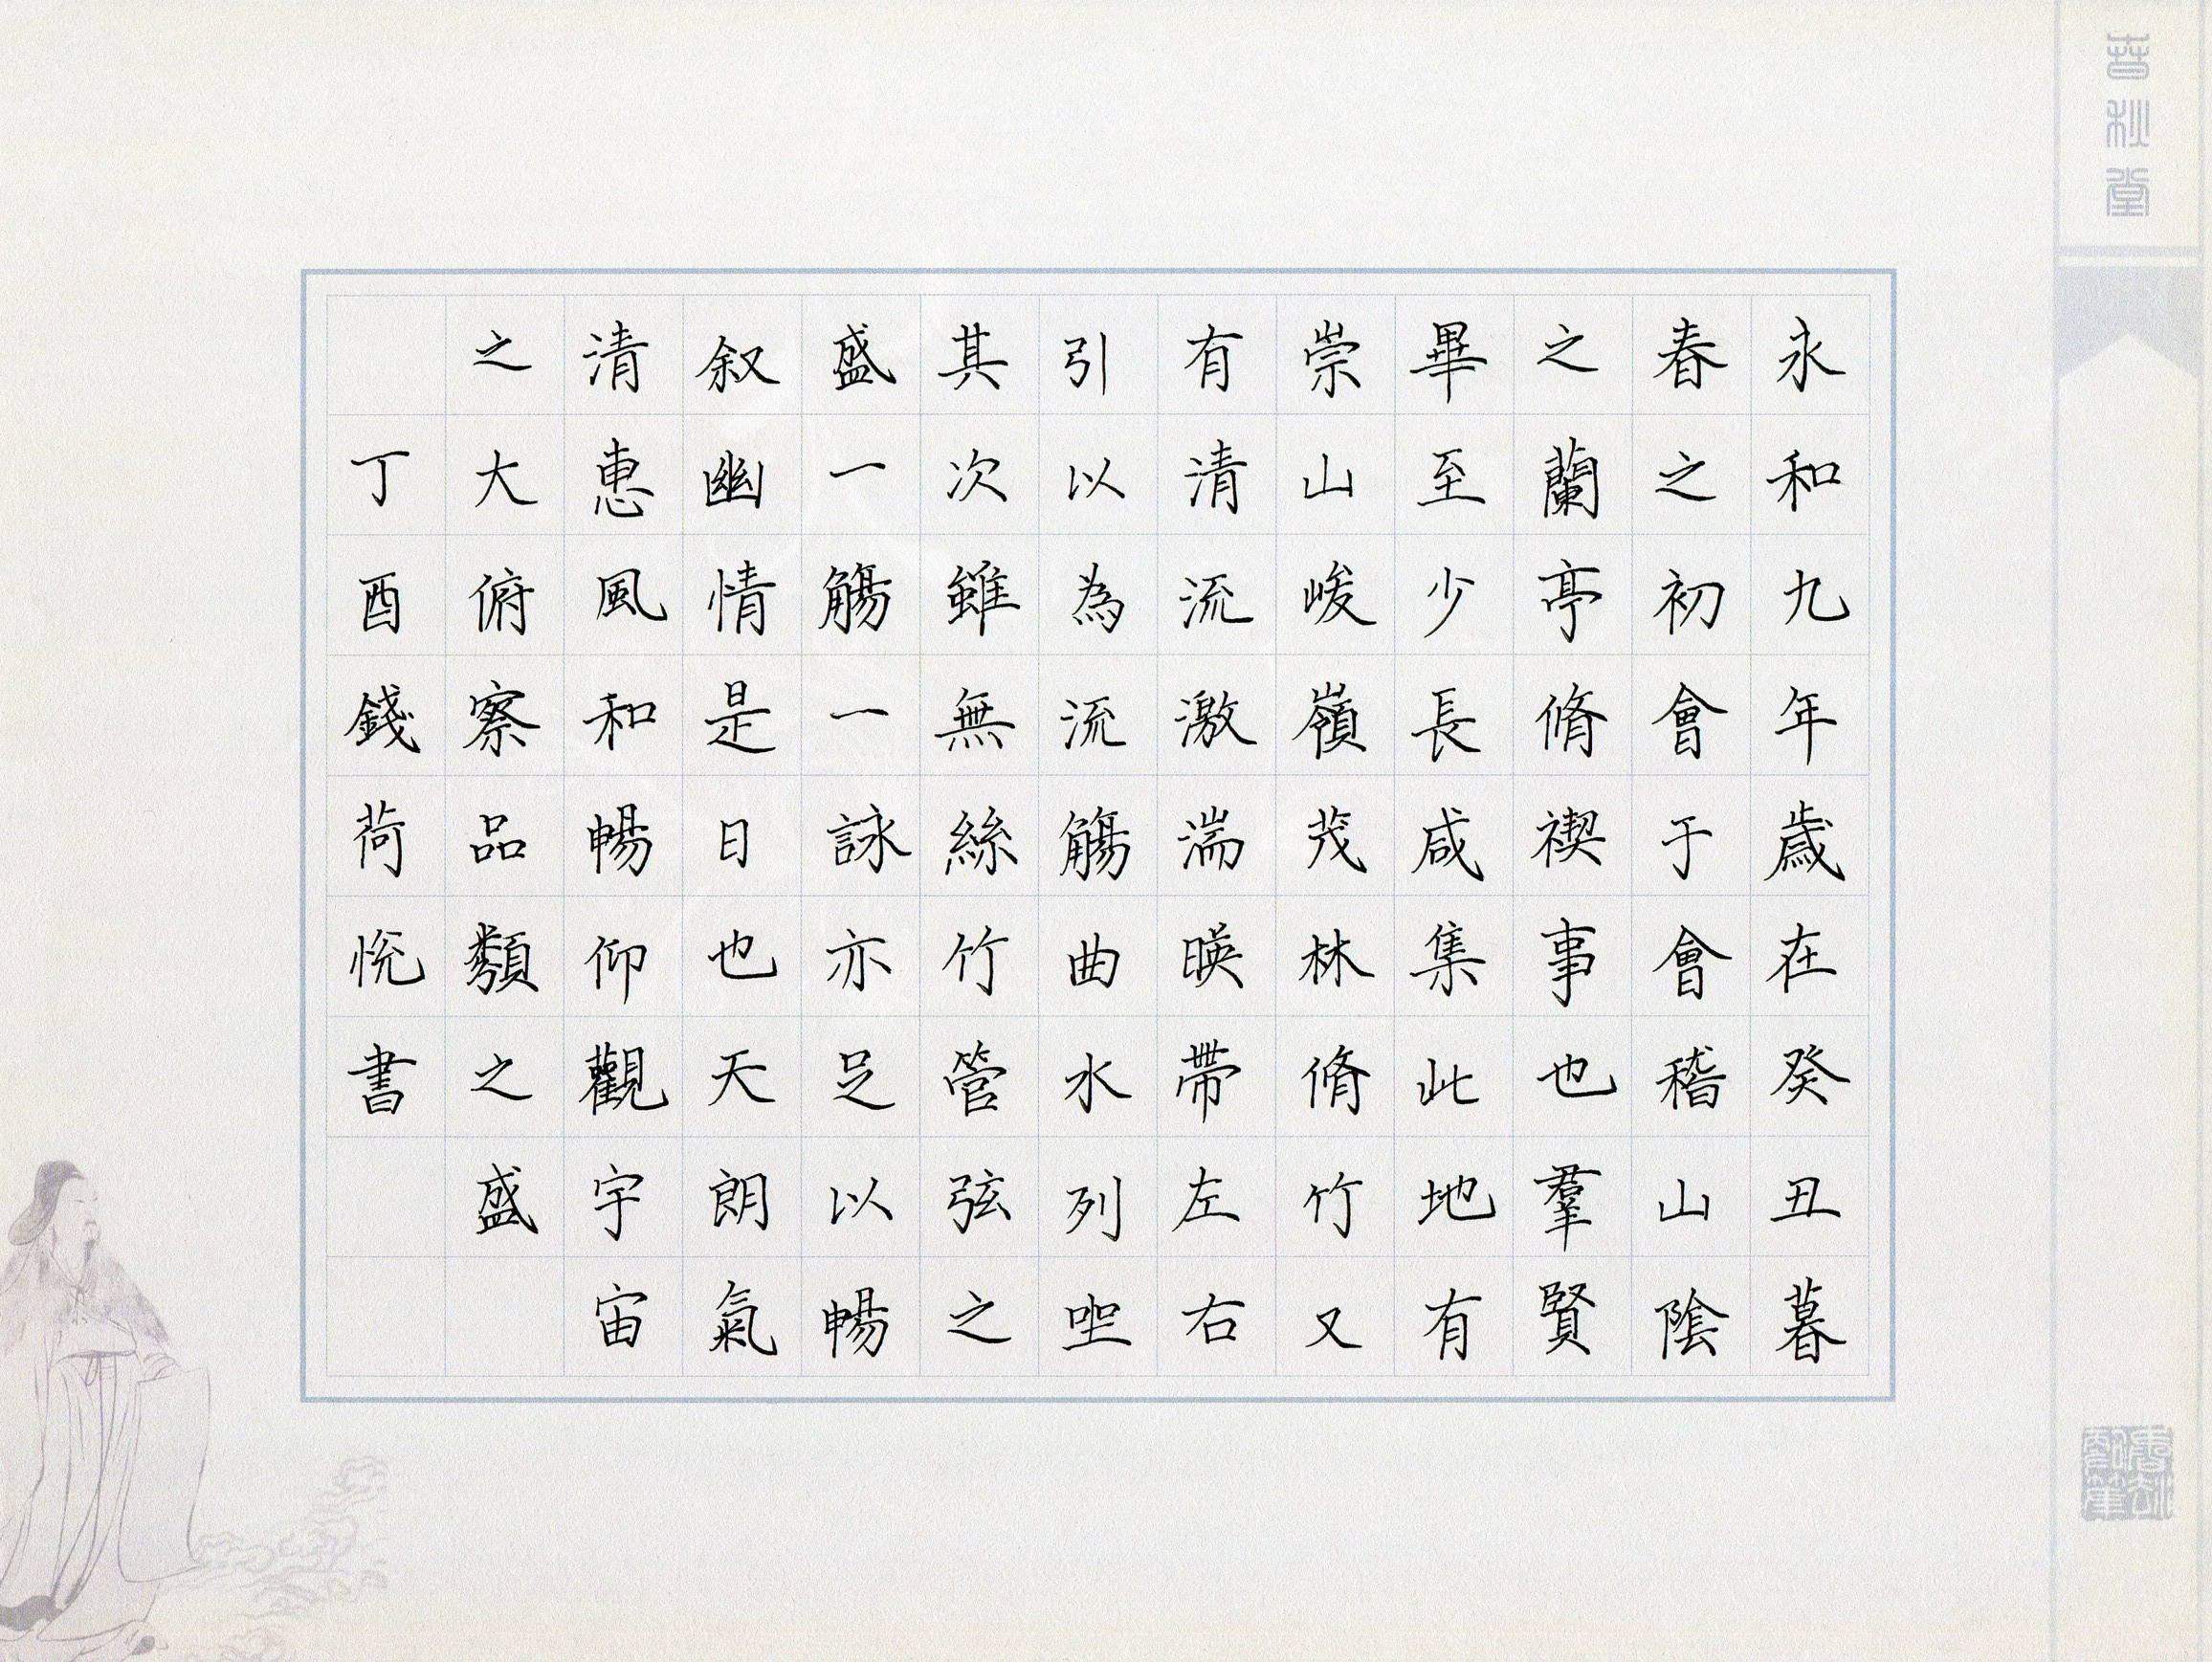 春秋堂
永和九年歲在癸丑暮
春之初會于會稽山陰
之蘭亭脩禊事也羣賢
畢至少長咸集此地有
崇山峻嶺茂林脩竹又
有清流激湍暎帶左右
引以為流觴曲水列坐
其次雖無絲竹管弦之
盛一觴一詠亦足以暢
叙幽情是日也天朗氣
清惠風和暢仰觀宇宙
之大俯察品類之盛
丁酉錢荷悅書